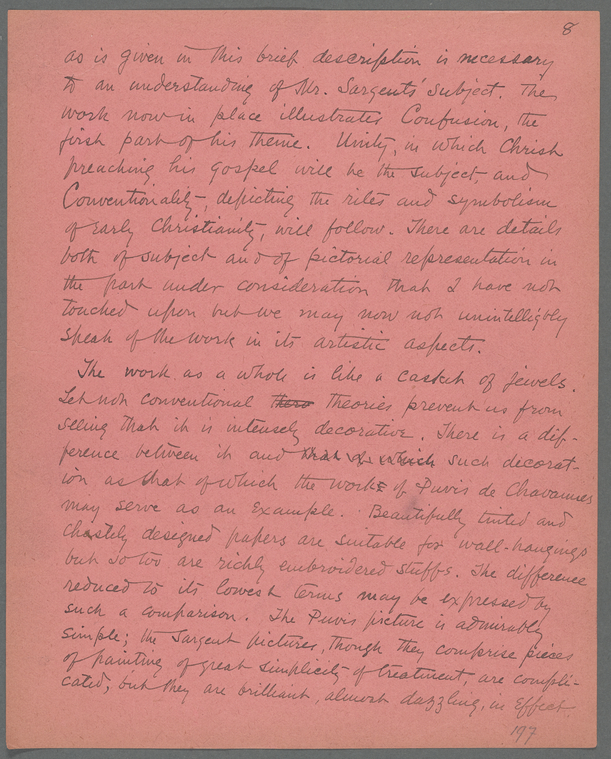 8
as is given in this brief description is necessary
to an understanding of Mr. Sargents' subject. The
work now in place illustrates Confusion, the
first part of his theme. Unity, in which Christ
preaching his gospel will be the subject, and
Conventionality, depicting the rites and symbolism
of Early Christianity, will follow. There are details
both of subject and of pictorial representation in
the part under consideration that I have not
touched upon but we may now not unintelligibly
speak of the work in its artistic aspects.
The work as a whole is like a casket of jewels.
Let not conventional theories prevent us from
seeing that it is intensely decorative. There is a dif-
ference between it and that of which such decorat-
ion as that of which the works of Puvis de Chavannes
may serve as an example. Beautifully tinted and
chastely designed papers are suitable for wall-hangings
but so too are richly embroidered stuffs. The difference
reduced to its lowest terms may be expressed by
such a comparison. The Puvis picture is admirably
simple; the Sargent pictures, though they comprise pieces
of painting of great simplicity of treatment, are compli-
cated; but they are brilliant, almost dazzling, in effect.
197